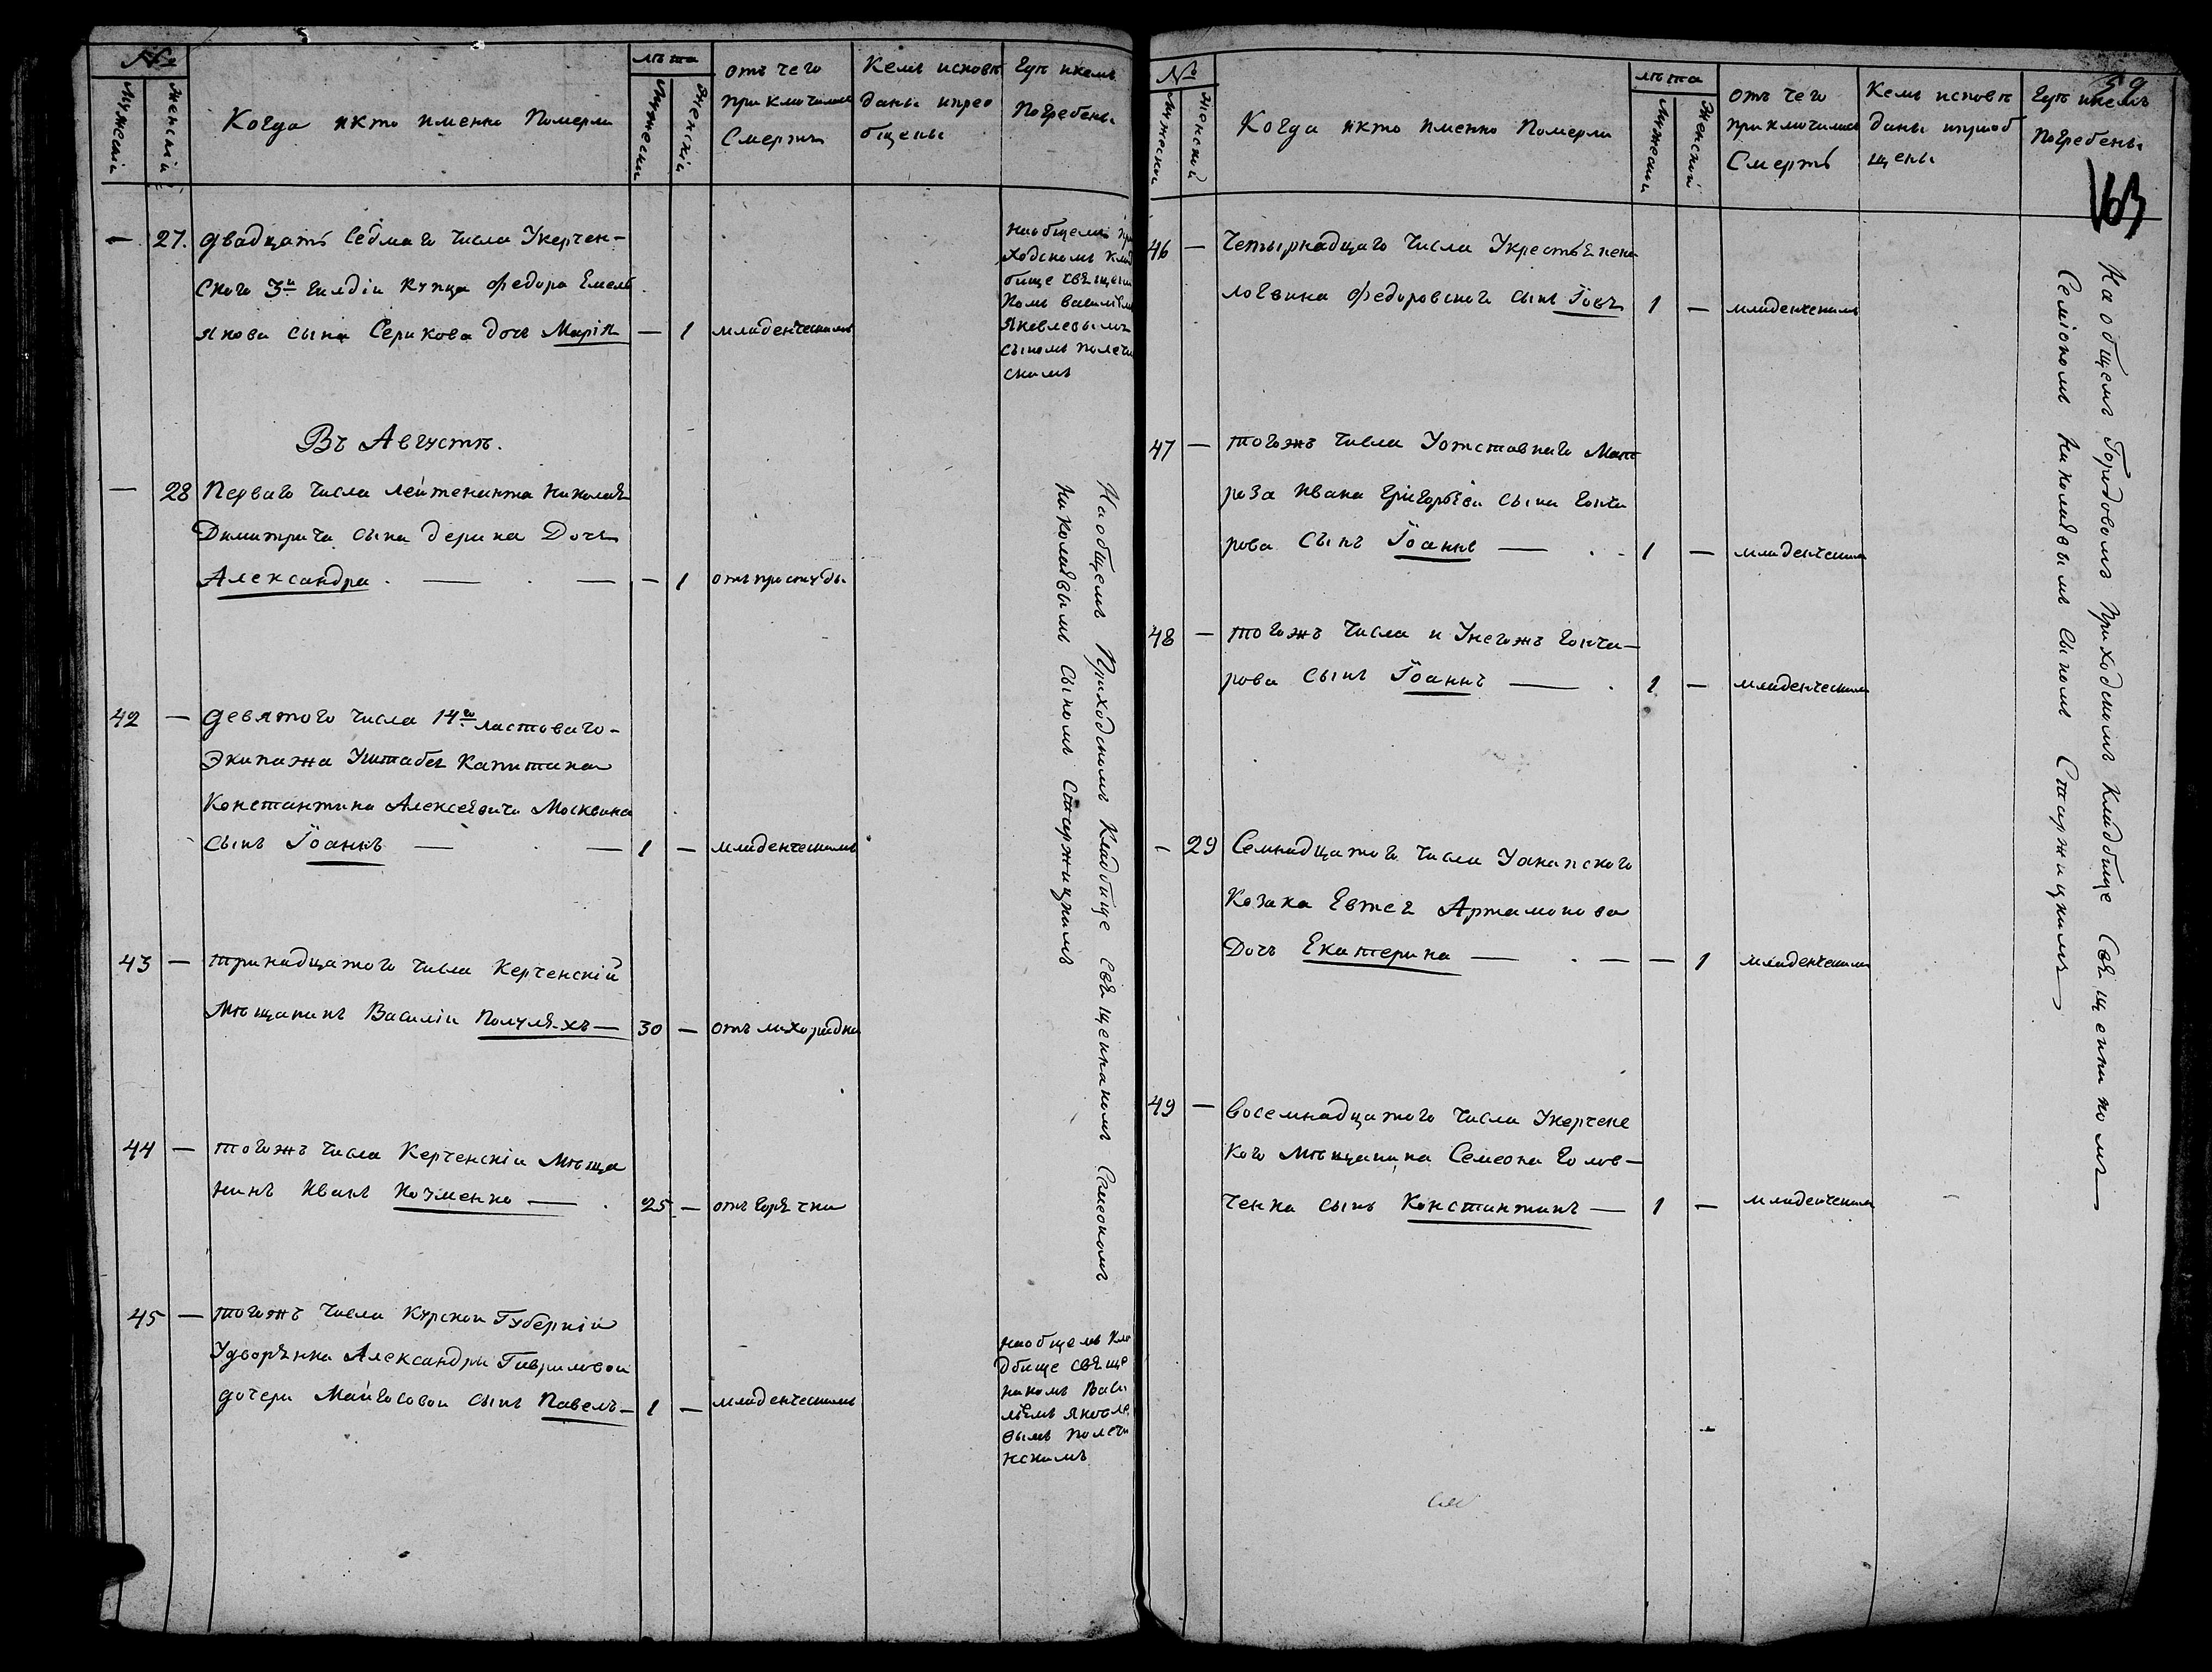 №
Мужескій
Женскій
Когда икто именно Померли
лѣта
Мужескій
Женскій
отъ чего
приключилась
Смерть
Кемъ исповѣ
даны иприо
бщены
Гдѣ икемъ
Погребены
— 27. двадцать Седмаго Числа Укерчен-
Скаго 3й Гилдіи Купца Федора Емель
янова сына Серикова дочь Марія — 1 младенческимъ
Наобщемъ при
ходскомъ клад
бище священи
комъ василіемъ
Яковлевымъ
Сыномъ полечи
скимъ
Въ Августѣ.
— 28 Перваго Числа лейтенанта Николая
Димитрича сына дерина Дочь
Александра — — — 1 отъ простуды
42 — девятого Числа 14го ластоваго-
Экипажа Уштабсъ Капитана
Константина Алексеевича Москвина
Сынъ Іоаннъ — — 1 — младенческимъ
43 — тринадцатого Числа Керченскій
Мѣщанинъ Василіи Полуляхъ — 30 — отъ лихорадки
44 — тогожъ Числа Керченскіи Мѣща
нинъ Иванъ Науменко — 25 — отъ Горячки
45 — тогожъ Числа Курскои Губерніи
Удворянки Александры Гавриловои
дочери Майгосовои Сынъ Павелъ — 1 — младенческимъ
Наобщемъ Приходскомъ Кладбище Священникомъ Симеономъ
Николаевымъ Сыномъ Стаержицкимъ
Наобщемъ Кла
дбище Свяще
никомъ Васи
лиемъ Яковле
вымъ Полечи
нскимъ
59
№
Мужескии
Женской
Когда икто именно Померли
лѣта
Мужескии
Женский
Отъ чего
приключилась
Смерть
Кемъ исповѣ
даны иприоб
щены
Гдѣ икемъ
Погребены
163
46 — Четырнадцаго Числа Укрестьянина
логвина Федоровского сынъ Іовъ 1 — младенческимъ
47 — тогожъ Числа Уотставнаго Мат
роза Ивана Григорьева сына Гонча
рова Сынъ Іоаннъ — 1 — младенческимъ
48 — тогожъ Числа и Унегожъ Гонча-
рова Сынъ Іоаннъ — 1 — младенческимъ
— 29 Семнадцатого Числа Уанапского
Козака Евтея Артамонова
Дочь Екатерина — — — 1 младенческимъ
49 — восемнадцатого Числа Укерченс
кого Мѣщанина Семеона Голов-
ченка сынъ Константинъ — 1 — младенческимъ
Наобщемъ Городовомъ Приходскомъ Кладбище Священникомъ
Семіономъ Николаевымъ Сыномъ Стаержицкимъ